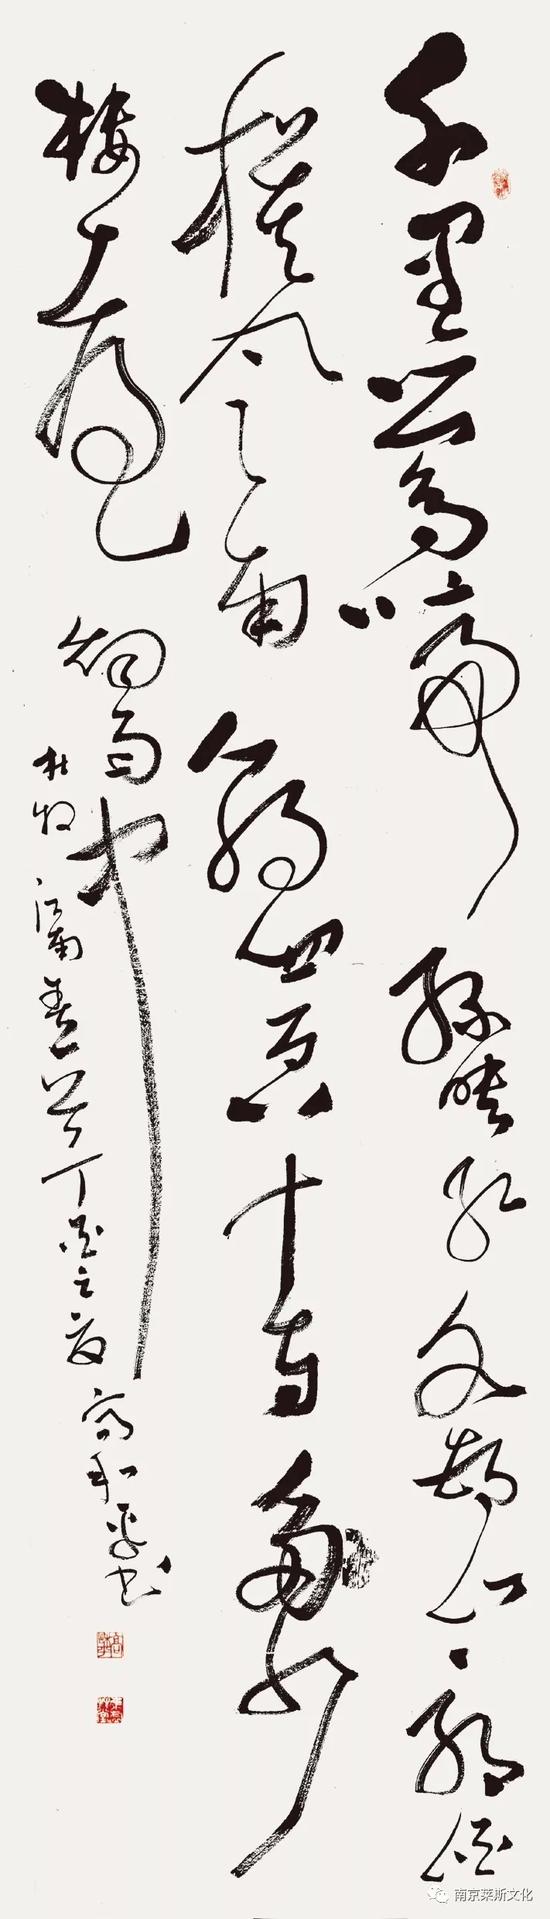 千里鶯啼綠映紅水村山郭酒
旗風南朝四百八十寺多少
樓臺烟雨中
杜牧江南春一首丁酉之夏高和平书
南京莱斯文化